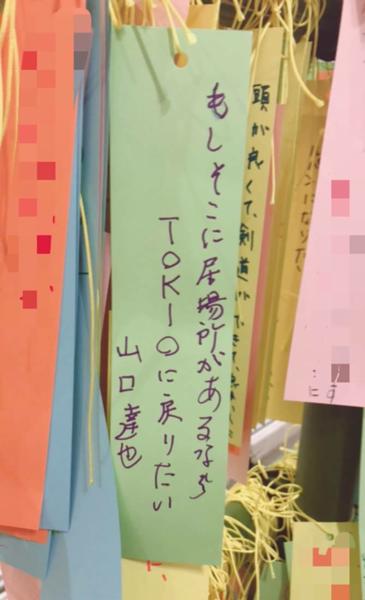 もしそこに居場所があるなら
TOKIOに戻りたい
山口達也
頭が良くて、剣道が
になりたい